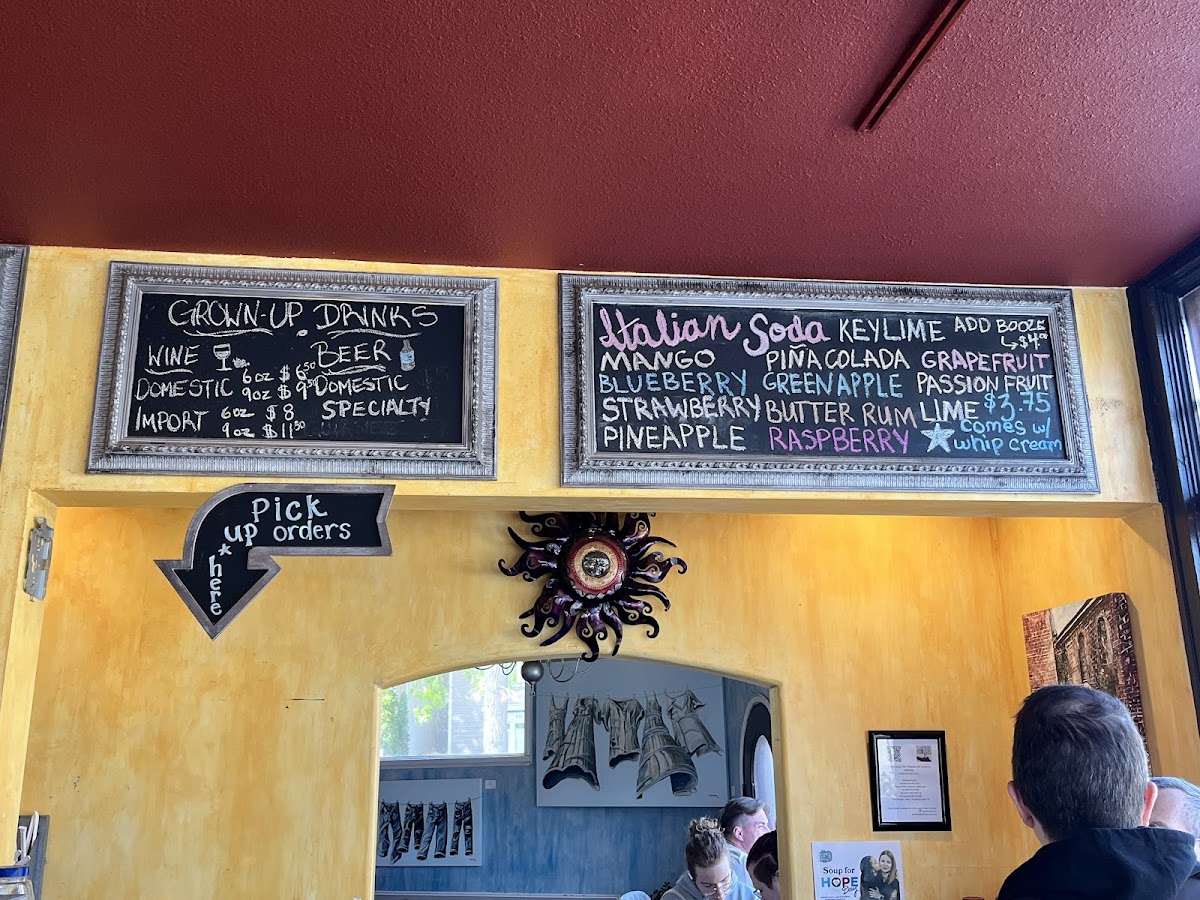 GROWN-UP DRINKS
WINE
DOMESTIC 6oz $6.50
9oz $9.50
IMPORT 6oz $8
9oz $11.50
BEER
DOMESTIC
SPECIALTY
Italian Soda KEYLIME ADD BOOZE
$4.00
MANGO PIÑA COLADA GRAPEFRUIT
BLUEBERRY GREEN APPLE PASSION FRUIT
STRAWBERRY BUTTER RUM LIME $3.75
PINEAPPLE RASPBERRY comes w/
whip cream
Pick
up orders
here
Soup for
HOPE